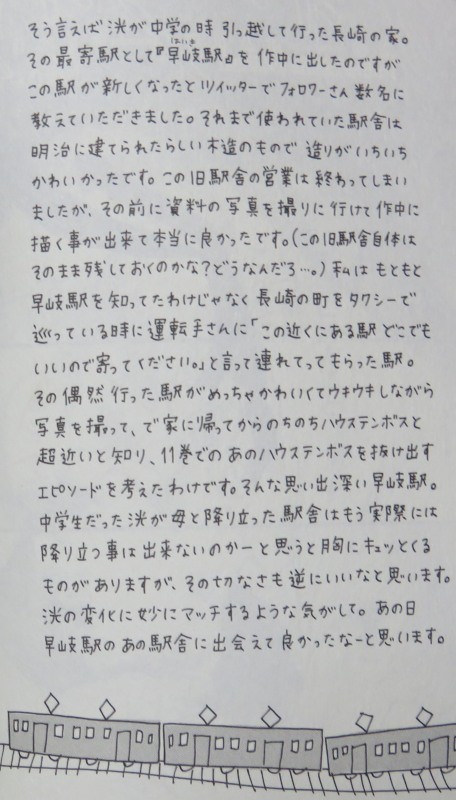 そう言えば洸が中学の時 引っ越して行った長崎の家。
その最寄駅として『早岐駅』を作中に出したのですが
はいき
この駅が新しくなったとツイッターでフォロワーさん数名に
教えていただきました。それまで使われていた駅舎は
明治に建てられたらしい木造のもので 造りがいちいち
かわいかったです。この旧駅舎の営業は終わってしまい
ましたが、その前に資料の写真を撮りに行けて作中に
描く事が出来て本当に良かったです。(この旧駅舎自体は
そのまま残しておくのかな?どうなんだろ…。)私はもともと
早岐駅を知ってたわけじゃなく長崎の町をタクシーで
巡っている時に運転手さんに「この近くにある駅どこでも
いいので寄ってください。」と言って連れてってもらった駅。
その偶然行った駅がめっちゃかわいくてウキウキしながら
写真を撮って、で家に帰ってからのちのちハウステンボスと
超近いと知り、11巻でのあのハウステンボスを抜け出す
エピソードを考えたわけです。そんな思い出深い早岐駅。
中学生だった洸が母と降り立った駅舎はもう実際には
降り立つ事は出来ないのかーと思うと胸にキュッとくる
ものがありますが、その切なさも逆にいいなと思います。
洸の変化に妙にマッチするような気がして。あの日
早岐駅のあの駅舎に出会えて良かったなーと思います。